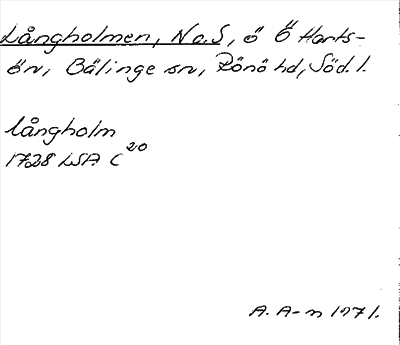 Långholmen, N o. S, ö Ö Harts-
ön, Bälinge sn, Rönö hd, Söd. l.
långholm
1728 LSA C 20
A. A-n 1971.